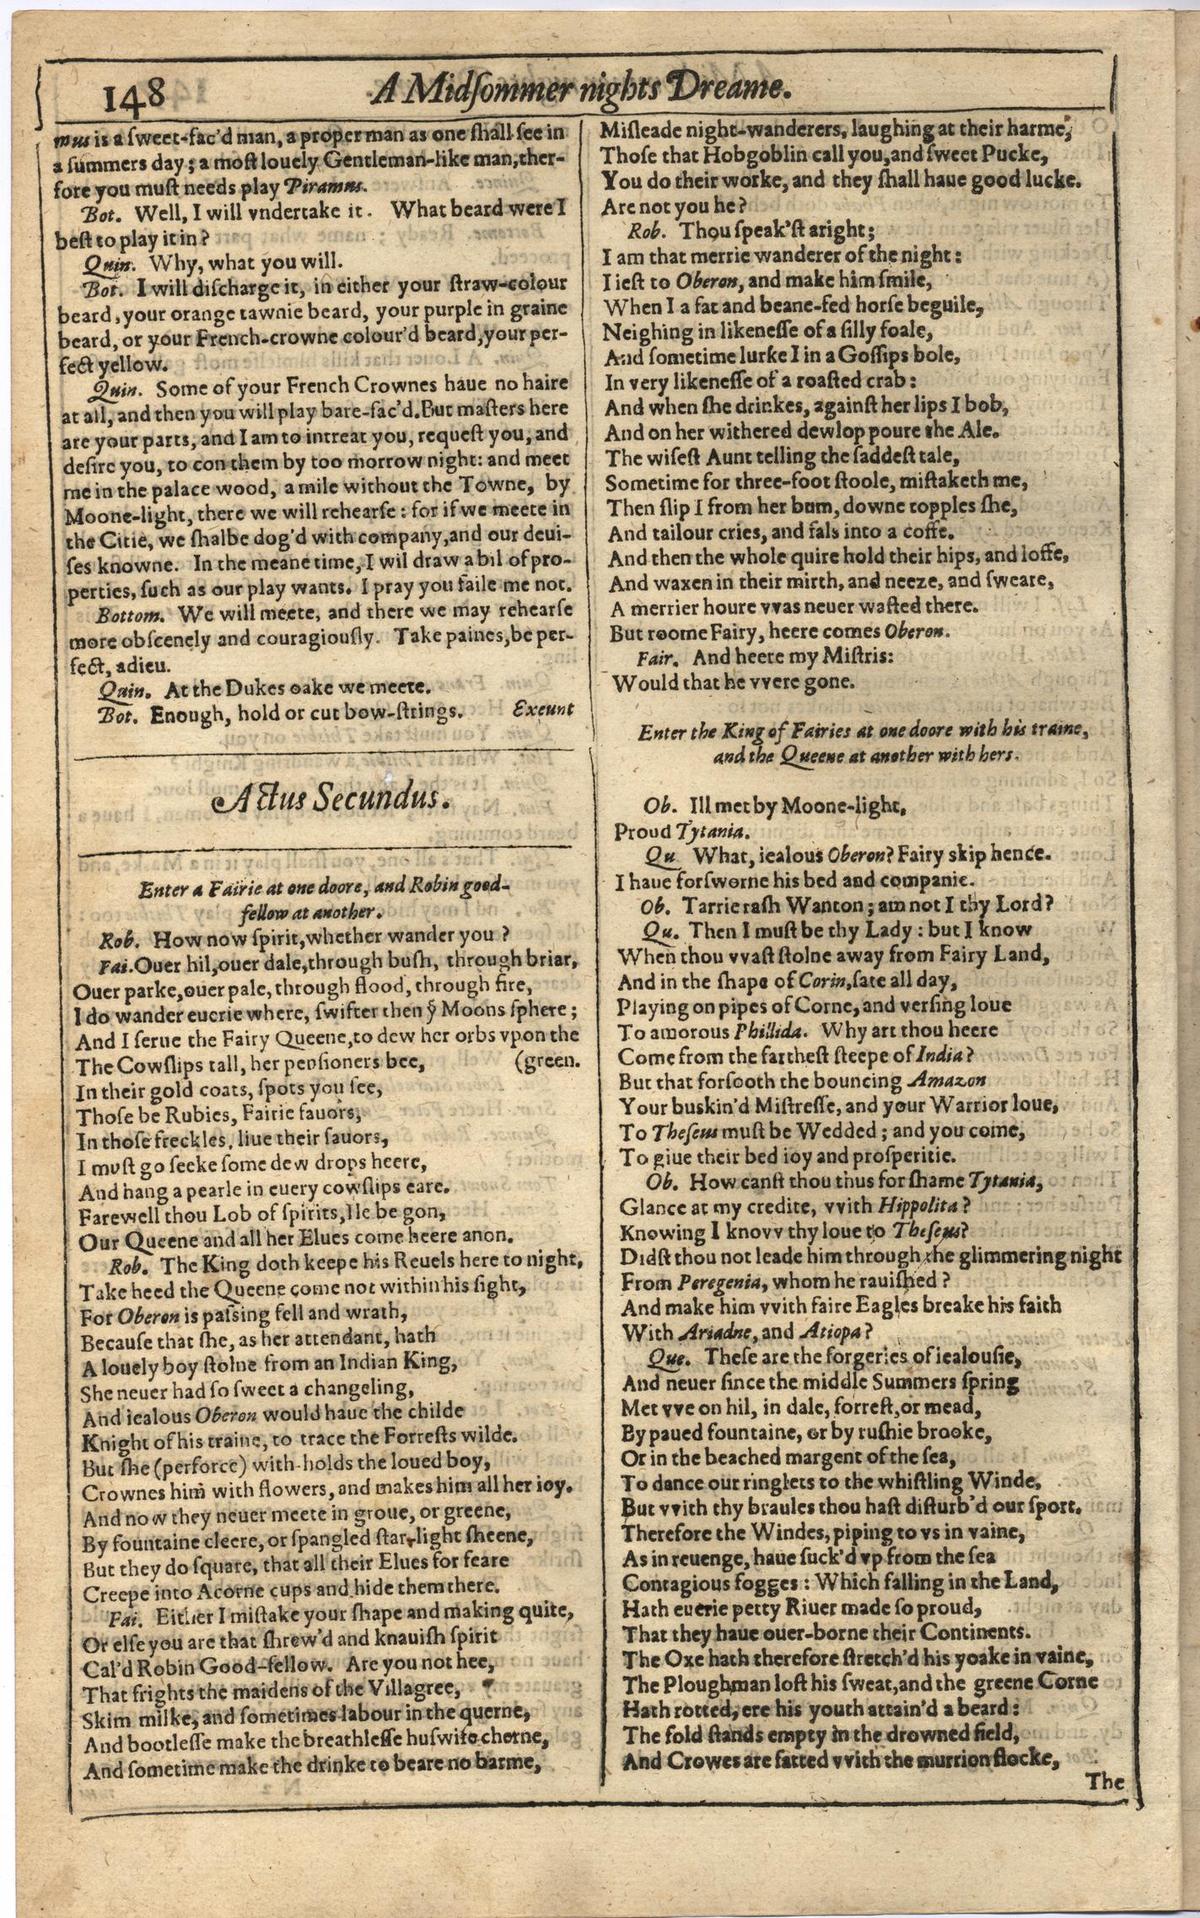 148
A Midſommer nights Dreame.
mus is a ſweet-fac'd man, a proper man as one ſhall ſee in
a ſummers day; a moſt louely Gentleman-like man, ther-
fore you muſt needs play Piramus.
Bot. Well, I will vndertake it. What beard were I
beſt to play it in?
Quin. Why, what you will.
Bot. I will diſcharge it, in either your ſtraw-colour
beard, your orange tawnie beard, your purple in graine
beard, or your French-crowne colour'd beard, your per-
fect yellow.
Quin. Some of your French Crownes haue no haire
at all, and then you will play bare-fac'd. But maſters here
are your parts, and I am to intreat you, requeſt you, and
deſire you, to con them by too morrow night: and meet
me in the palace wood, a mile without the Towne, by
Moone-light, there we will rehearſe: for if we meete in
the Citie, we ſhalbe dog'd with company, and our deui-
ſes knowne. In the meane time, I wil draw a bil of pro-
perties, ſuch as our play wants. I pray you faile me not.
Bottom. We will meete, and there we may rehearſe
more obſcenely and couragiouſly. Take paines, be per-
fect, adieu.
Quin. At the Dukes oake we meete.
Bot. Enough, hold or cut bow-ſtrings. Exeunt
Actus Secundus.
Enter a Fairie at one doore, and Robin good-
fellow at another.
Rob. How now ſpirit, whether wander you?
Fai. Ouer hil, ouer dale, through buſh, through briar,
Ouer parke, ouer pale, through flood, through fire,
I do wander euerie where, ſwifter then yͤ Moons ſphere;
And I ſerue the Fairy Queene, to dew her orbs vpon the
The Cowſlips tall, her penſioners bee, (green.
In their gold coats, ſpots you ſee,
Thoſe be Rubies, Fairie fauors,
In thoſe freckles, liue their ſauors,
I muſt go ſeeke ſome dew drops heere,
And hang a pearle in euery cowſlips eare.
Farewell thou Lob of ſpirits, Ile be gon,
Our Queene and all her Elues come heere anon.
Rob. The King doth keepe his Reuels here to night,
Take heed the Queene come not within his ſight,
For Oberon is paſsing fell and wrath,
Becauſe that ſhe, as her attendant, hath
A louely boy ſtolne from an Indian King,
She neuer had ſo ſweet a changeling,
And iealous Oberon would haue the childe
Knight of his traine, to trace the Forreſts wilde.
But ſhe (perforce) with-holds the loued boy,
Crownes him with flowers, and makes him all her ioy.
And now they neuer meete in groue, or greene,
By fountaine cleere, or ſpangled ſtar-light ſheene,
But they do ſquare, that all their Elues for feare
Creepe into Acorne cups and hide them there.
Fai. Either I miſtake your ſhape and making quite,
Or elſe you are that ſhrew'd and knauiſh ſpirit
Cal'd Robin Good-fellow. Are you not hee,
That frights the maidens of the Villagree,
Skim milke, and ſometimes labour in the querne,
And bootleſſe make the breathleſſe huſwife cherne,
And ſometime make the drinke to beare no barme,
Miſleade night-wanderers, laughing at their harme,
Thoſe that Hobgoblin call you, and ſweet Pucke,
You do their worke, and they ſhall haue good lucke.
Are not you he?
Rob. Thou ſpeak'ſt aright;
I am that merrie wanderer of the night:
I ieſt to Oberon, and make him ſmile,
When I a fat and beane-fed horſe beguile,
Neighing in likeneſſe of a ſilly foale,
And ſometime lurke I in a Goſſips bole,
In very likeneſſe of a roaſted crab:
And when ſhe drinkes, againſt her lips I bob,
And on her withered dewlop poure the Ale.
The wiſeſt Aunt telling the ſaddeſt tale,
Sometime for three-foot ſtoole, miſtaketh me,
Then ſlip I from her bum, downe topples ſhe,
And tailour cries, and fals into a coffe.
And then the whole quire hold their hips, and loffe,
And waxen in their mirth, and neeze, and ſweare,
A merrier houre vvas neuer waſted there.
But roome Fairy, heere comes Oberon.
Fair. And heere my Miſtris:
Would that he vvere gone.
Enter the King of Fairies at one doore with his traine,
and the Queene at another with hers.
Ob. Ill met by Moone-light,
Proud Tytania.
Qu. What, iealous Oberon? Fairy skip hence.
I haue forſworne his bed and companie.
Ob. Tarrie raſh Wanton; am not I thy Lord?
Qu. Then I muſt be thy Lady: but I know
When thou vvaſt ſtolne away from Fairy Land,
And in the ſhape of Corin, ſate all day,
Playing on pipes of Corne, and verſing loue
To amorous Phillida. Why art thou heere
Come from the fartheſt ſteepe of India?
But that forſooth the bouncing Amazon
Your buskin'd Miſtreſſe, and your Warrior loue,
To Theſeus muſt be Wedded; and you come,
To giue their bed ioy and proſperitie.
Ob. How canſt thou thus for ſhame Tytania,
Glance at my credite, vvith Hippolita?
Knowing I knovv thy loue to Theſeus?
Didſt thou not leade him through the glimmering night
From Peregenia, whom he rauiſhed?
And make him vvith faire Eagles breake his faith
With Ariadne, and Atiopa?
Que. Theſe are the forgeries of iealouſie,
And neuer ſince the middle Summers ſpring
Met vve on hil, in dale, forreſt, or mead,
By paued fountaine, or by ruſhie brooke,
Or in the beached margent of the ſea,
To dance our ringlets to the whiſtling Winde,
But vvith thy braules thou haſt diſturb'd our ſport.
Therefore the Windes, piping to vs in vaine,
As in reuenge, haue ſuck'd vp from the ſea
Contagious fogges: Which falling in the Land,
Hath euerie petty Riuer made ſo proud,
That they haue ouer-borne their Continents.
The Oxe hath therefore ſtretch'd his yoake in vaine,
The Ploughman loſt his ſweat, and the greene Corne
Hath rotted, ere his youth attain'd a beard:
The fold ſtands empty in the drowned field,
And Crowes are fatted vvith the murrion flocke,
The